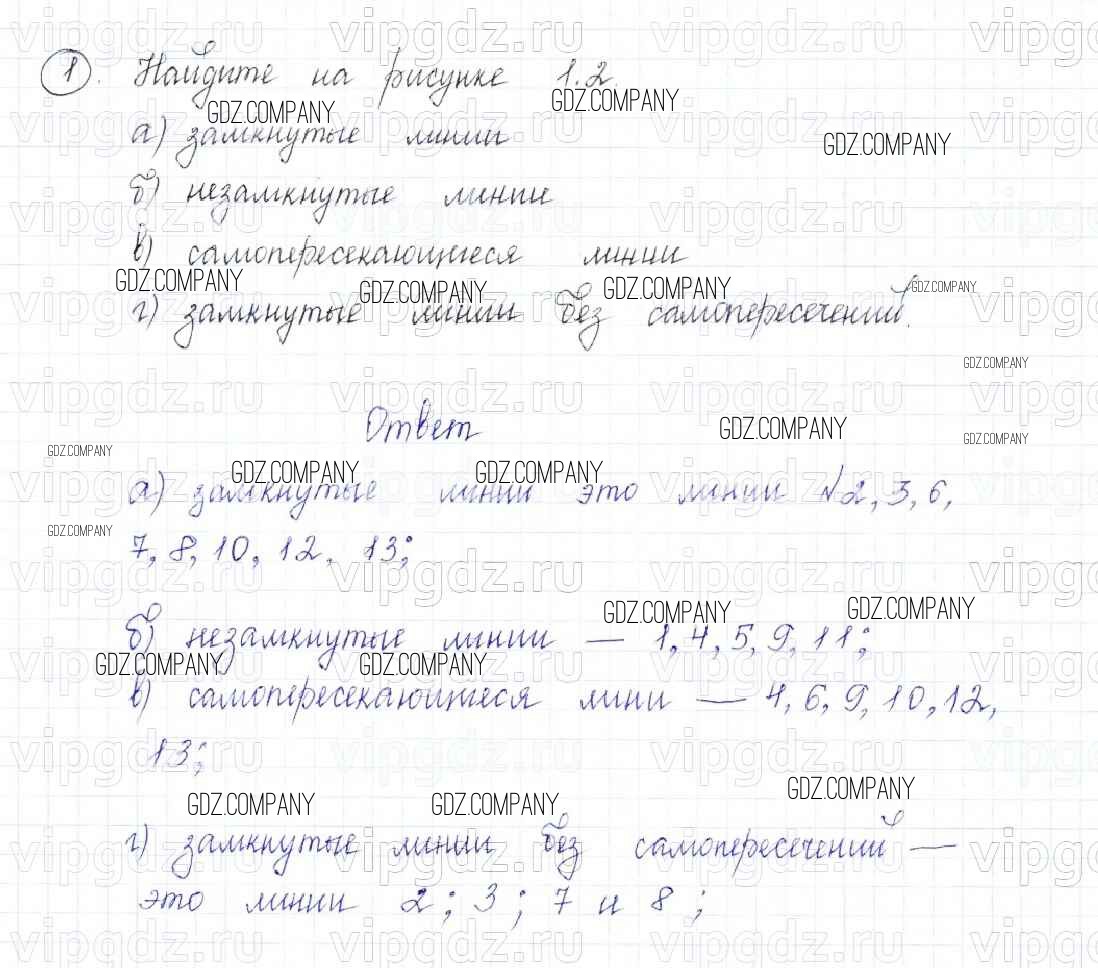 1. Найдите на рисунке 1.2.
а) замкнутые линии
б) незамкнутые линии
в) самопересекающиеся линии
г) замкнутые линии без самопересечений.
Ответ
а) замкнутые линии это линии №2, 3, 6,
7, 8, 10, 12, 13;
б) незамкнутые линии — 1, 4, 5, 9, 11;
в) самопересекающиеся лини — 4, 6, 9, 10, 12,
13;
г) замкнутые линии без самопересечений —
это линии 2; 3; 7 и 8;
vipgdz.ru
GDZ.COMPANY